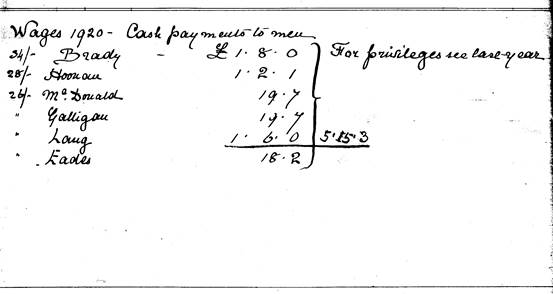 Wages 1920 - Cash payments to men
34/- Brady - £ 1. 8. 0 For privileges see last year
28/- Noonan 1. 2. 1
26/- McDonald 19. 7
" Galligan 19. 7
" Lang 1. 6. 0 5.15.3
" Eades 18. 2